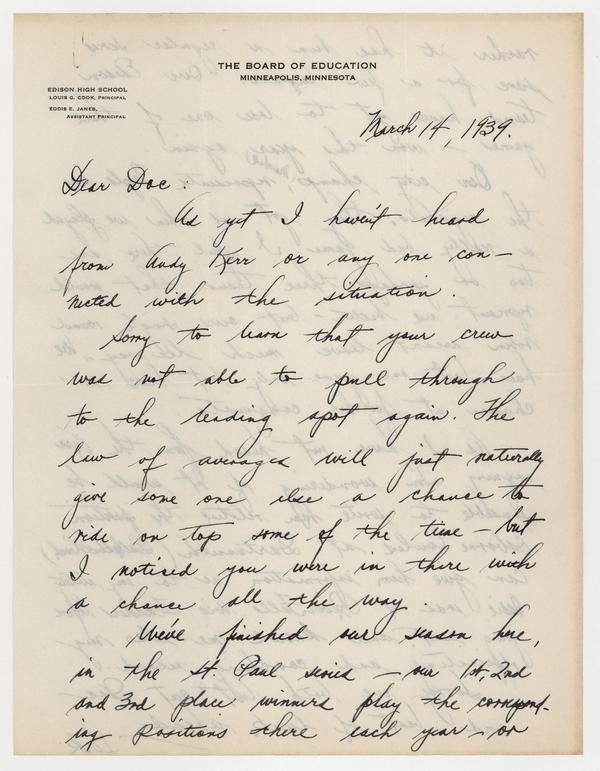 THE BOARD OF EDUCATION
MINNEAPOLIS, MINNESOTA
EDISON HIGH SCHOOL
LOUIS G. COOK, PRINCIPAL
EDDIS E. JANES,
ASSISTANT PRINCIPAL
March 14, 1939.
Dear Doc:
As yet I haven't heard
from Andy Kerr or any one con-
nected with the situation.
Sorry to learn that your crew
was not able to pull through
to the leading spot again. The
law of averages will just naturally
give some one else a chance to
ride on top some of the time - but
I noticed you were in there with
a chance all the way.
We've finished our season here,
in the St. Paul series - our 1st, 2nd
and 3rd place winners play the correspond-
ing positions there each year - or